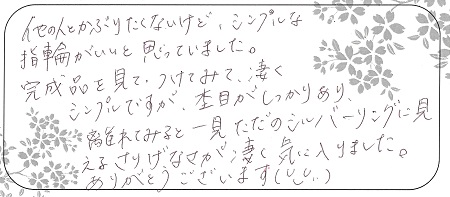 他の人とかぶりたくないけど、シンプルな
指輪がいいと思っていました。
完成品を見て、つけてみて、凄く
シンプルですが、杢目がしっかりあり、
離れてみると一見ただのシルバーリングに見
えるさりげなさが凄く気に入りました。
ありがとうございます(